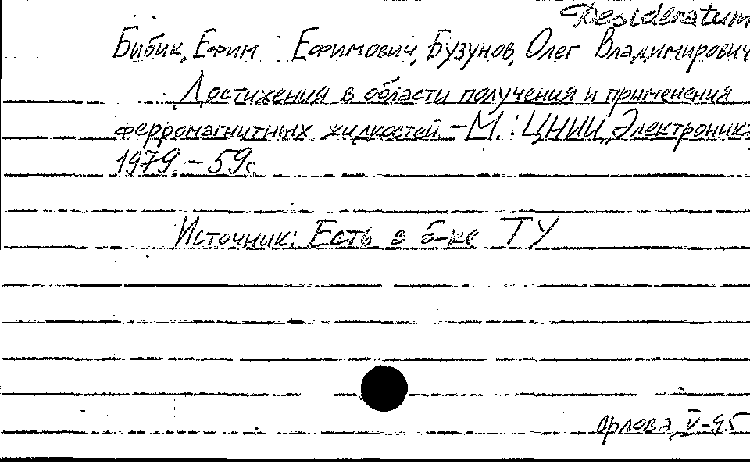 Desideratum
Бибик, Ефим Ефимович, Бузунов, Олег Владимирович
Достижения в области получения и применения
ферромагнитных жидкостей. – М.: ЦНИИ Электроника,
1979. – 59с
Источник: Есть в б-ке ТУ
Орлова, V-95